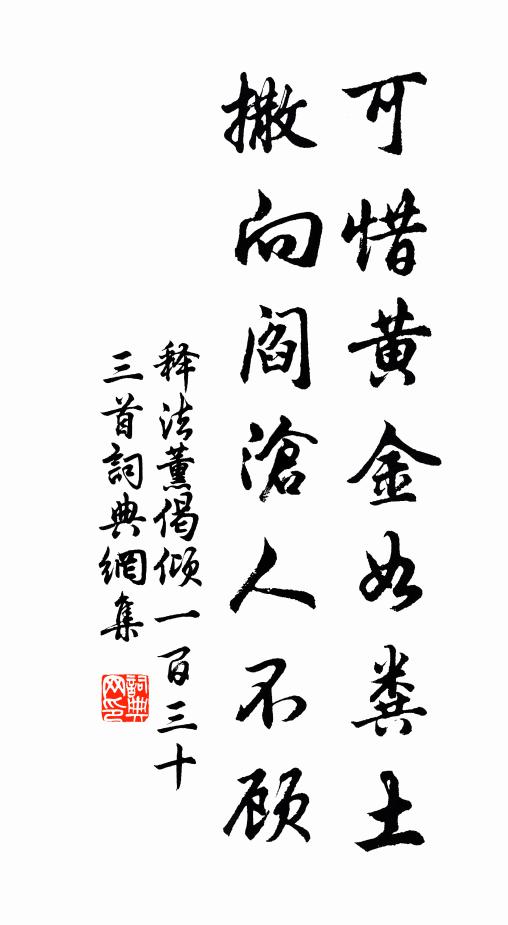 可惜黄金如粪土
撒向阎滄人不顾
释法薰偈倾一百三十
三首詞典網集
詞典
网印